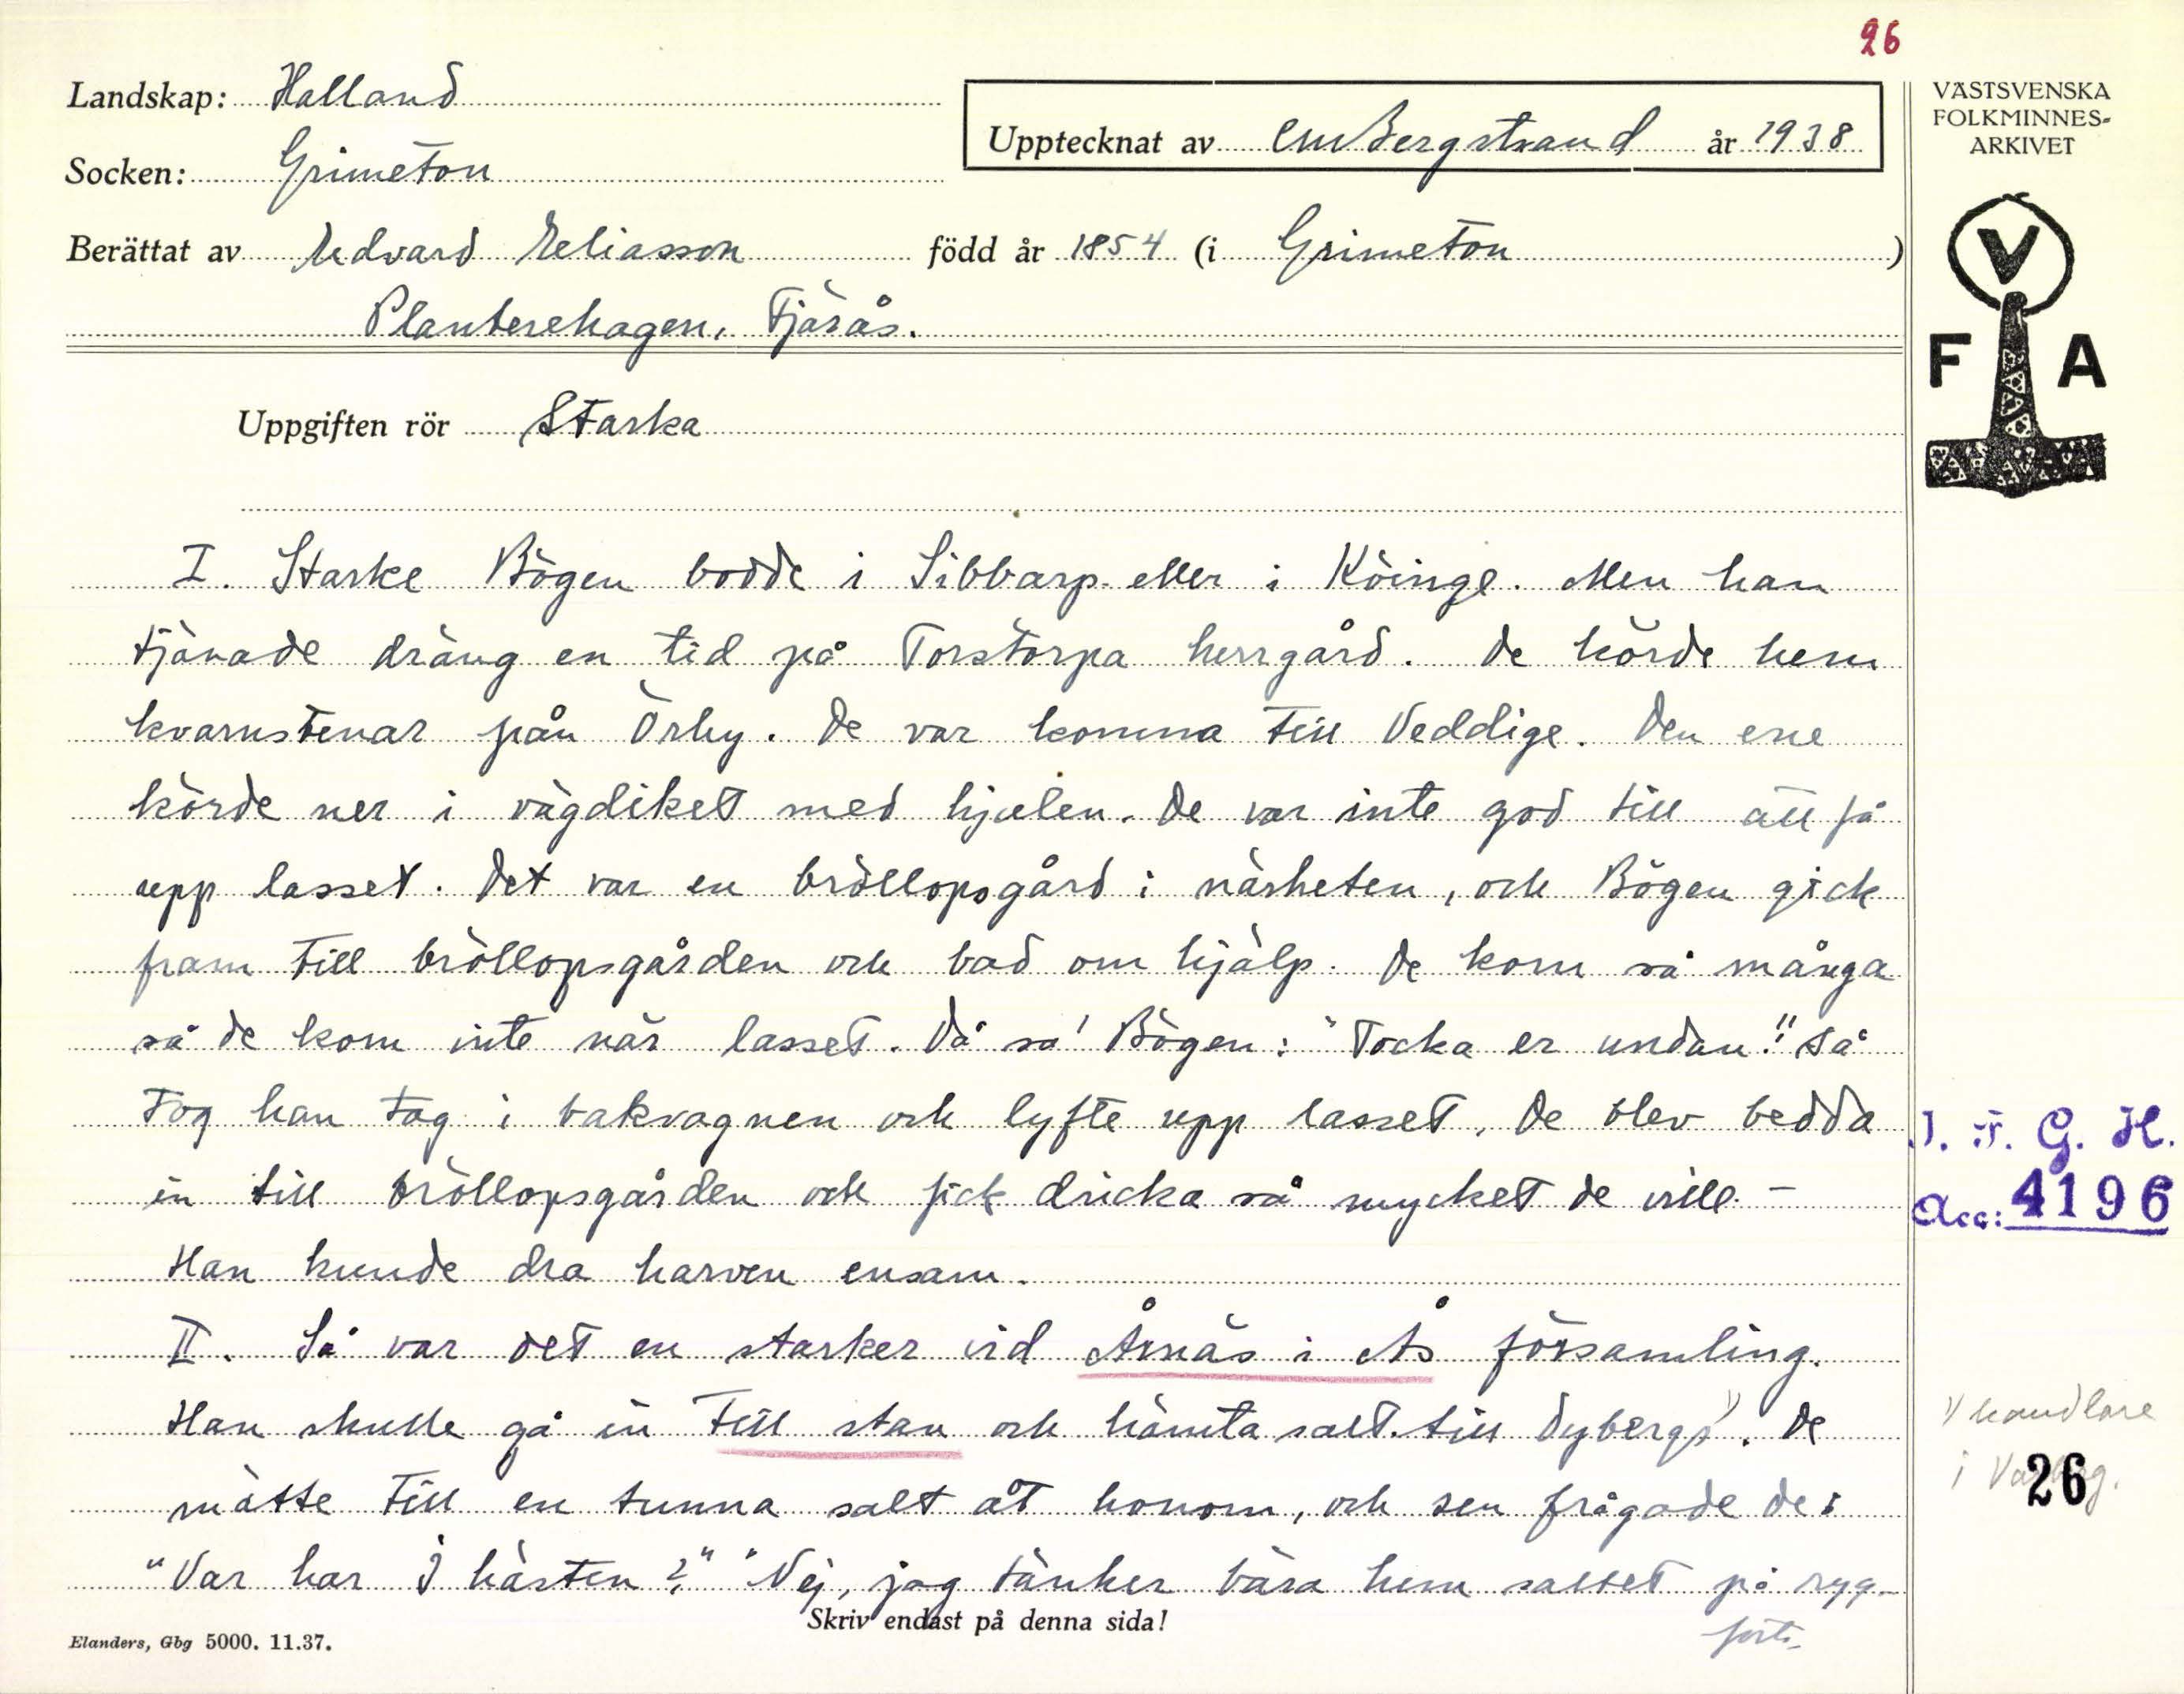 26
Landskap: Halland
Upptecknat av CM Bergstrand år 1938
Socken: Grimeton
Berättat av Edvard Eeliasson född år 1854 (i Grimeton )
Planterehagen, Fjärås.
Uppgiften rör Starka
VÄSTSVENSKA
FOLKMINNES-
ARKIVET
V
F A
I. Starke Bögen bodde i Sibbarp eller i Köinge. Men han
tjänade dräng en tid på Torstorpa herrgård. De körde hem
kvarnstenar från Örby. De var komma till Veddige. Den ene
körde ner i vägdiket med hjulen. De var inte god till att få
upp lasset. Det var en bröllopsgård i närheten, och Bögen gick
fram till bröllopsgården och bad om hjälp. De kom så många
så de kom inte när lasset. Då sa' Bögen: "Tocka er undan!" Så
tog han tag i bakvagnen och lyfte upp lasset. De blev bedda
in till bröllopsgården och fick dricka så mycket de ville. –
Han kunde dra harven ensam.
II. Så var det en starker vid Årnäs i Ås församling.
Han skulle gå in till stan och hämta salt till Dybergs 1). De
mätte till en tunna salt åt honom, och sen frågade de:
"Var har I hästen?" "Nej, jag tänker bära hem saltet på ryg-
forts.
I. F. G. H.
Acc: 4196
1) handlare
i Varberg.
26
Skriv endast på denna sida!
Elanders, Gbg 5000. 11.37.